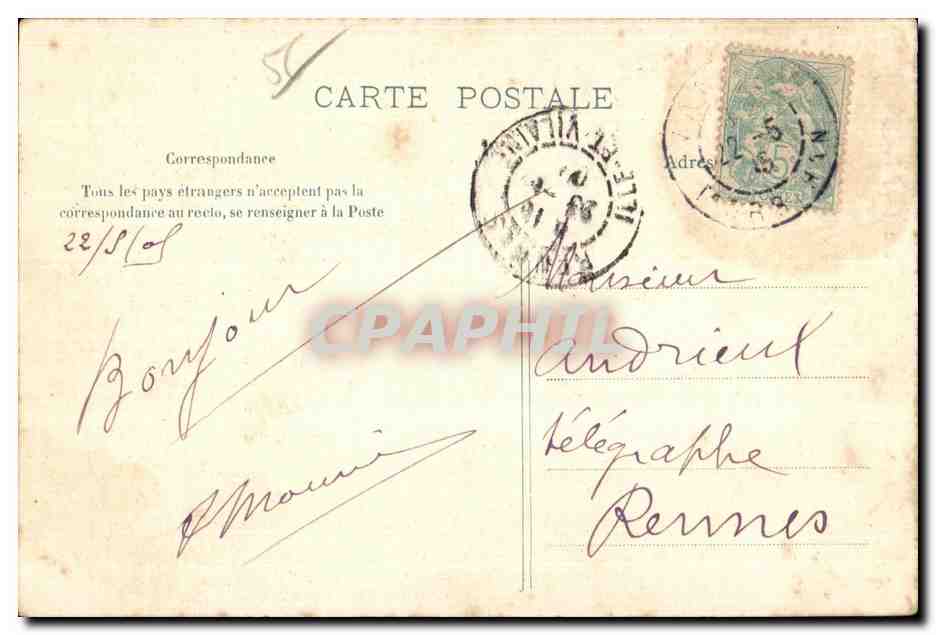 56
CARTE POSTALE
Correspondance
Adres
Tous les pays étrangers n'acceptent pas la
correspondance au recto, se renseigner à la Poste
ILLE-ET-VILAINE
22 -5
05
22/5/05
Bonjour
Monsieur
Andrieux
télégraphe
Rennes
CPAPHIL